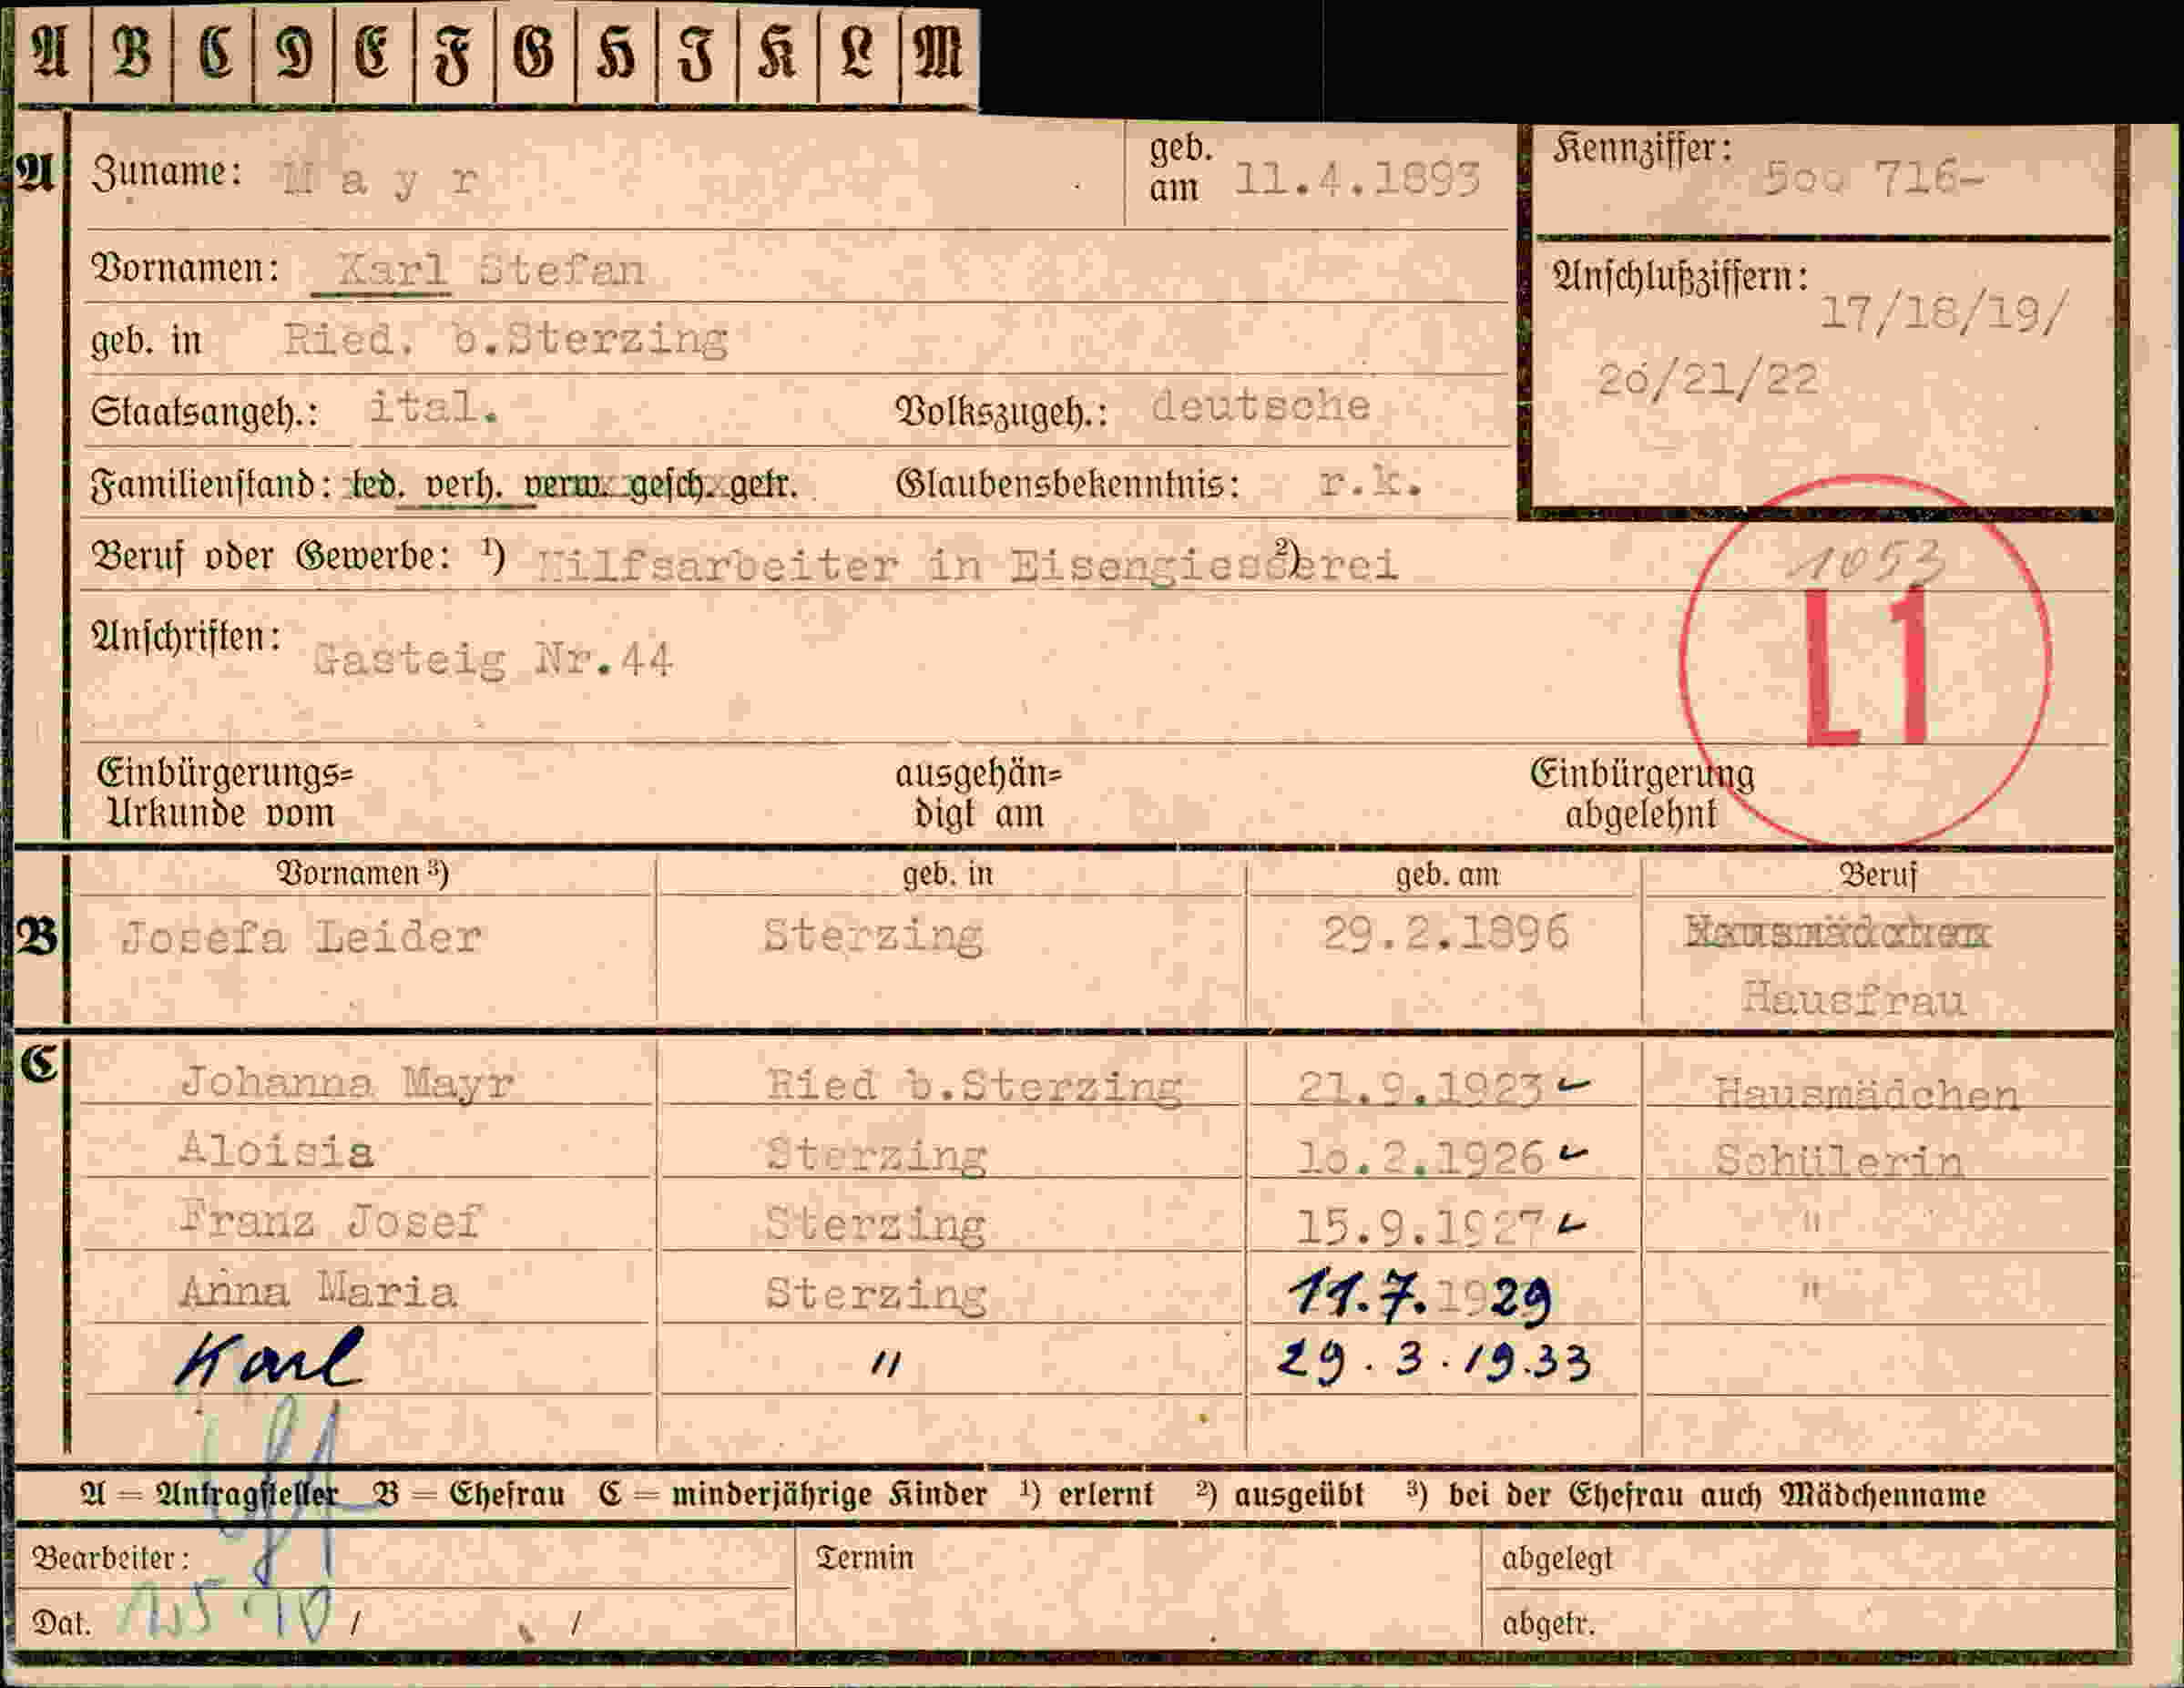 A B C D E F G H I K L M
A Zuname: Mayr geb. am 11.4.1893 Kennziffer: 5oo 716-
Vornamen: Karl Stefan
Anschlußziffern: 17/18/19/
geb. in Ried. b.Sterzing
2o/21/22
Staatsangeh.: ital. Volkszugeh.: deutsche
Familienstand: led. verh. verw. gesch. getr. Glaubensbekenntnis: r.k.
Beruf oder Gewerbe: ¹) Hilfsarbeiter in Eisengiesserei ²)
1053
L1
Anschriften: Gasteig Nr.44
Einbürgerungs=
Urkunde vom
ausgehän=
digt am
Einbürgerung
abgelehnt
Vornamen ³) geb. in geb. am Beruf
B Josefa Leider Sterzing 29.2.1896 Hausmädchen
Hausfrau
C Johanna Mayr Ried b.Sterzing 21.9.1923 Hausmädchen
Aloisia Sterzing 1o.2.1926 Schülerin
Franz Josef Sterzing 15.9.1927 "
Anna Maria Sterzing 11.7.1929 "
Karl " 29.3.1933
A = Antragsteller B = Ehefrau C = minderjährige Kinder ¹) erlernt ²) ausgeübt ³) bei der Ehefrau auch Mädchenname
Bearbeiter: Termin abgelegt
Dat. / / abgetr.